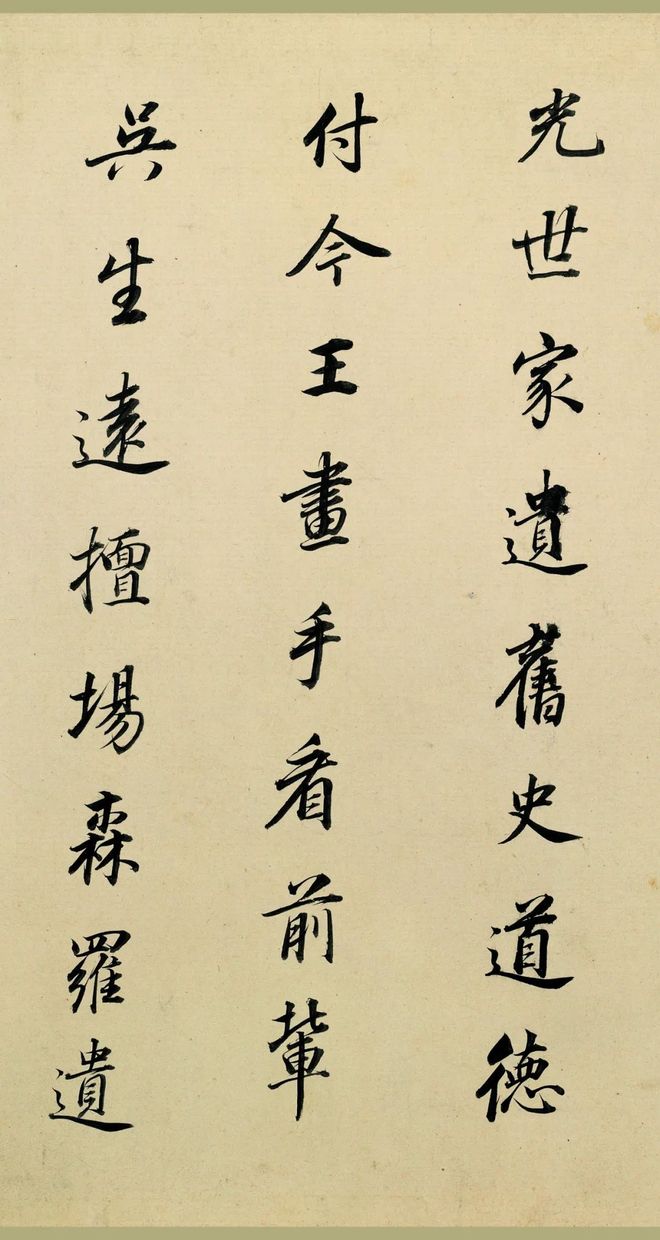 光世家遺舊史道德
付今王畫手看前輩
吳生遠擅場森羅遺